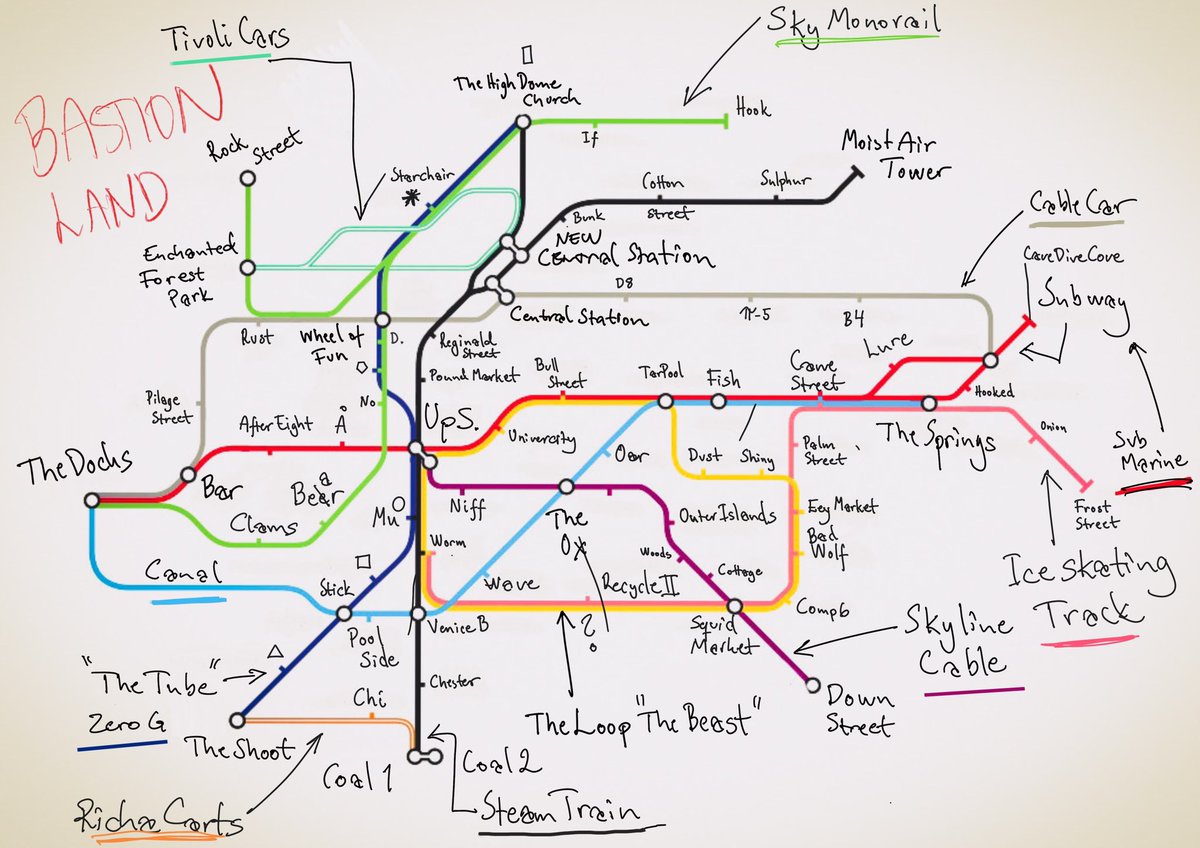 Tivoli Cars
Sky Monorail
BASTION
LAND
The High Dome
Church
Hook
If
Moist Air
Tower
Rock
Street
Starchair
Cotton
Street
Sulphur
Bunk
Cable Car
NEW
Central Station
Enchanted
Forest
Park
Cave Dive Cove
Subway
D8
π-5
B4
Central Station
Rust
Wheel of
Fun
D.
Reginald
Street
Lure
Pound Market
Bull
Street
Tar Pool
Fish
Crane
Street
Hooked
Pilage
Street
No
After Eight
Å
UpS.
University
The Springs
Onion
Sub
Marine
The Docks
Bar
Bear
a
Oar
Dust
Shiny
Palm
Street
Frost
Street
Clams
Mu
Niff
The
Ox
Outer Islands
Eey Market
Bad
Wolf
Canal
Worm
Woods
Cottage
Ice skating
Track
Stick
Wave
Recycle II
Comp6
Pool
Side
Venice B
?
Squid
Market
Skyline
Cable
"The Tube"
Zero G
Chester
Chi
The Loop "The Beast"
Down
Street
The Shoot
Coal 1
Coal 2
Richa Carts
Steam Train